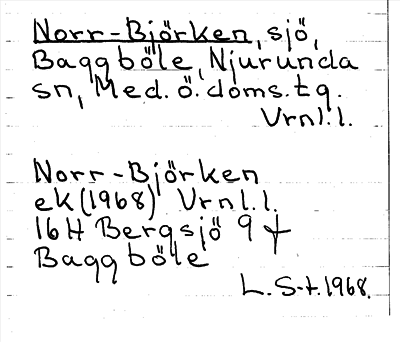 Norr-Björken, sjö,
Baggböle, Njurunda
sn, Med. ö. doms. tg.
Vrnl.l.
Norr-Björken
ek (1968) Vrnl.l.
16 H Bergsjö 9 f
Baggböle
L. S-t. 1968.